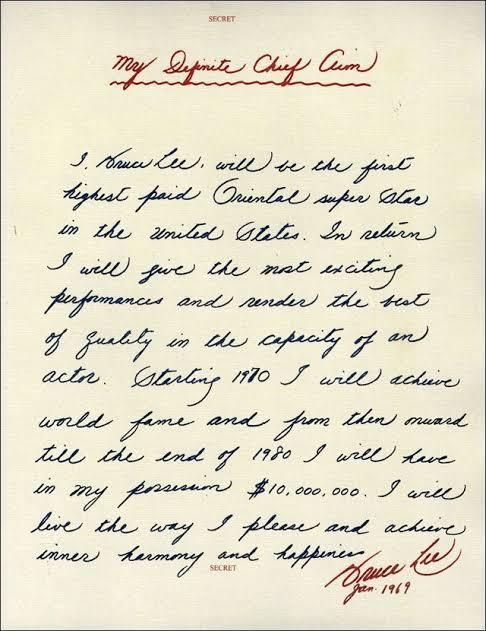 SECRET
My Definite Chief Aim
I, Bruce Lee, will be the first
highest paid Oriental super star
in the United States. In return
I will give the most exciting
performances and render the best
of quality in the capacity of an
actor. Starting 1970 I will achieve
world fame and from then onward
till the end of 1980 I will have
in my possession $10,000,000. I will
live the way I please and achieve
inner harmony and happiness
SECRET
Bruce Lee
Jan. 1969